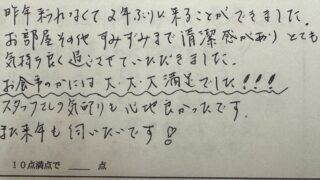 昨年来られなくて2年ぶりに来ることができました。
お部屋その他 すみずみまで清潔感があり とても
気持ち良く過ごさせていただきました。
お食事のかにはは 大・大・大満足でした!!!
スタッフさんの気配りも心地良かったです。
また来年も伺いたいです!
10点満点で 点